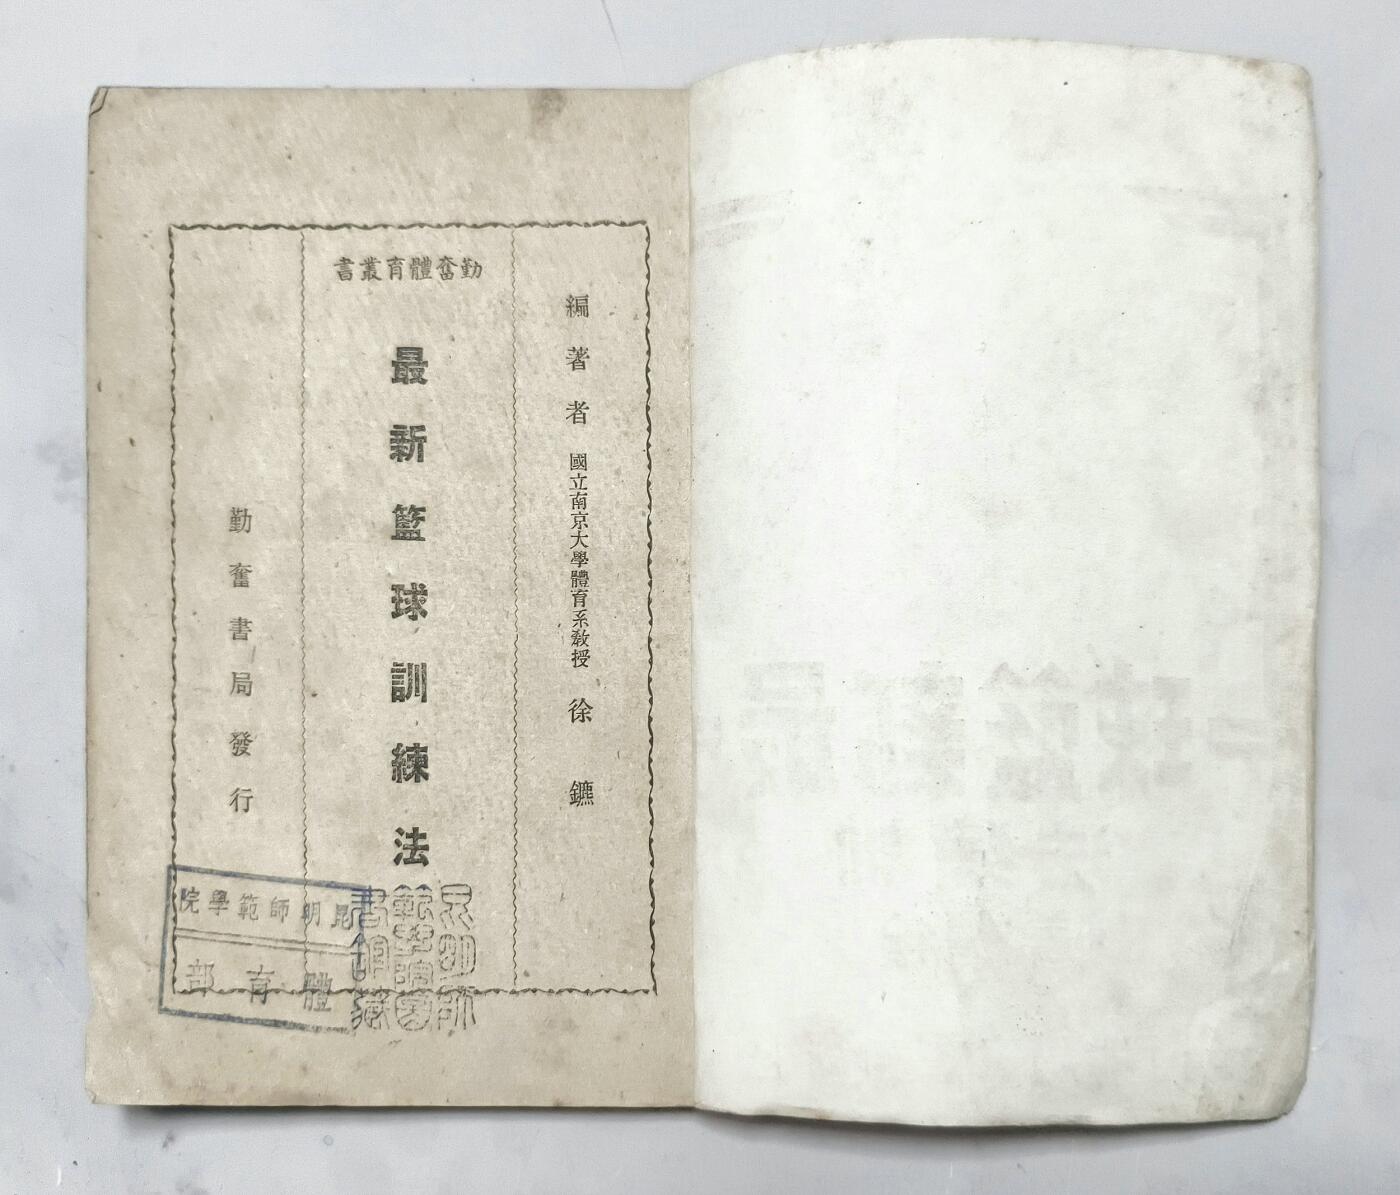 編著者 國立南京大學體育系教授 徐鑣
勤奮體育叢書
最新籃球訓練法
勤奮書局發行
昆明師範學院
體育部
昆明師
範學院圖
書館藏